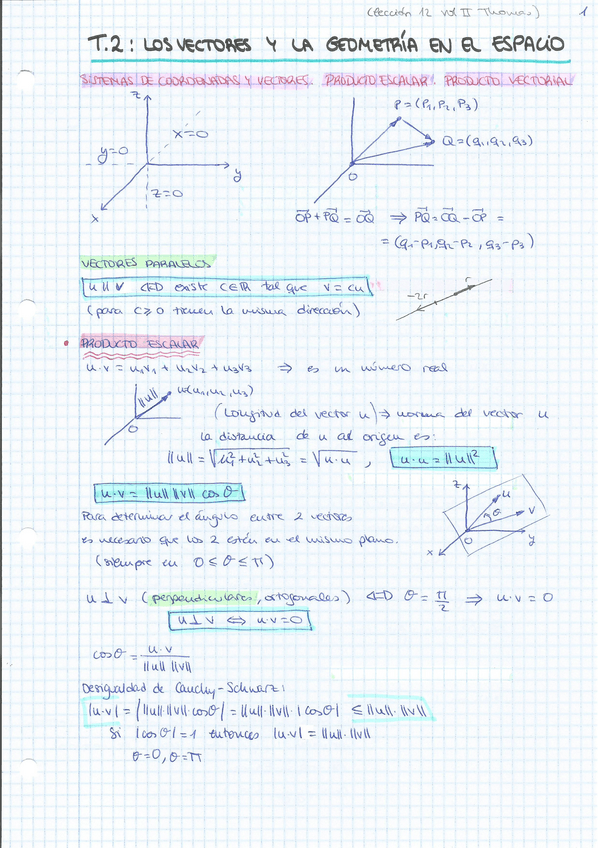 (Lección 12 vol II Thomas) 1
T.2: LOS VECTORES Y LA GEOMETRÍA EN EL ESPACIO
SISTEMAS DE COORDENADAS Y VECTORES. PRODUCTO ESCALAR. PRODUCTO VECTORIAL
z
x=0
y=0
y
z=0
x
P=(P₁,P₂,P₃)
Q=(q₁,q₂,q₃)
O
OP⃗ + PQ⃗ = OQ⃗ ⇒ PQ⃗ = OQ⃗ - OP⃗ =
= (q₁-P₁, q₂-P₂, q₃-P₃)
VECTORES PARALELOS
u ∥ v ⇔ existe c∈ℝ tal que v = cu
(para c≥0 tienen la misma dirección)
r
-2r
• PRODUCTO ESCALAR
u·v = u₁v₁ + u₂v₂ + u₃v₃ ⇒ es un número real
||u||
u(u₁,u₂,u₃)
O
(Longitud del vector u) ⇒ norma del vector u
la distancia de u al origen es:
||u|| = √(u₁²+u₂²+u₃²) = √(u·u) , u·u = ||u||²
u·v = ||u|| ||v|| cos θ
z
u
θ
v
O
x
y
Para determinar el ángulo entre 2 vectores
es necesario que los 2 estén en el mismo plano.
(siempre en 0 ≤ θ ≤ π)
u ⊥ v (perpendiculares, ortogonales) ⇔ θ = π/2 ⇒ u·v = 0
u ⊥ v ⇔ u·v = 0
cos θ = u·v / ||u|| ||v||
Desigualdad de Cauchy-Schwarz:
|u·v| = | ||u||·||v||·cos θ | = ||u||·||v||·|cos θ| ≤ ||u||·||v||
Si |cos θ| = 1 entonces |u·v| = ||u||·||v||
θ=0, θ=π